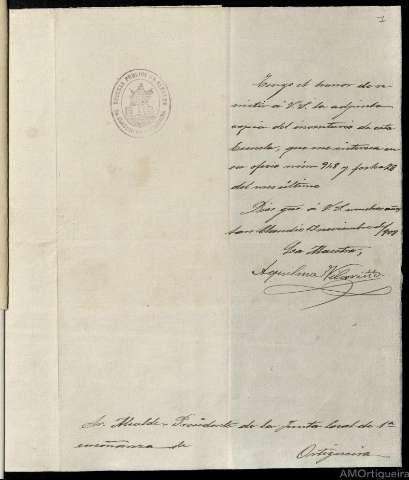 1
Tengo el honor de re-
mitir á V.S. la adjunta
copia del inventario de esta
Escuela, que me interesa en
su oficio núm 948 y fecha 26
del mes último
Dios gue á V.S. muchos años
San Claudio 12 noviembre 1909
La Maestra,
Aquilina Vilariño
Sr. Alcalde-Presidente de la Junta local de 1ª
enseñanza de Ortigueira
ESCUELA PUBLICA
AMOrtigueira